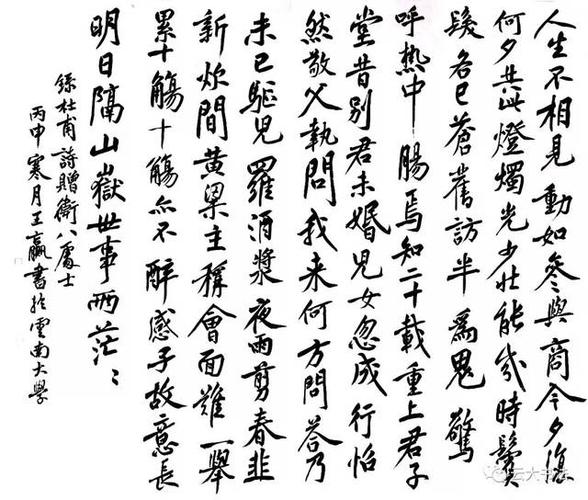 人生不相見動如參與商今夕復
何夕共此燈燭光少壯能幾時鬢
髮各已蒼舊訪半為鬼驚
呼熱中腸焉知二十載重上君子
堂昔別君未婚兒女忽成行怡
然敬父執問我来何方問答乃
未已驅兒羅酒漿夜雨剪春韭
新炊間黃梁主稱會面難一舉
累十觴十觴亦不醉感子故意長
明日隔山嶽世事兩茫〻
錄杜甫詩贈衛八處士
丙申寒月王贏書於雲南大學
云大书法